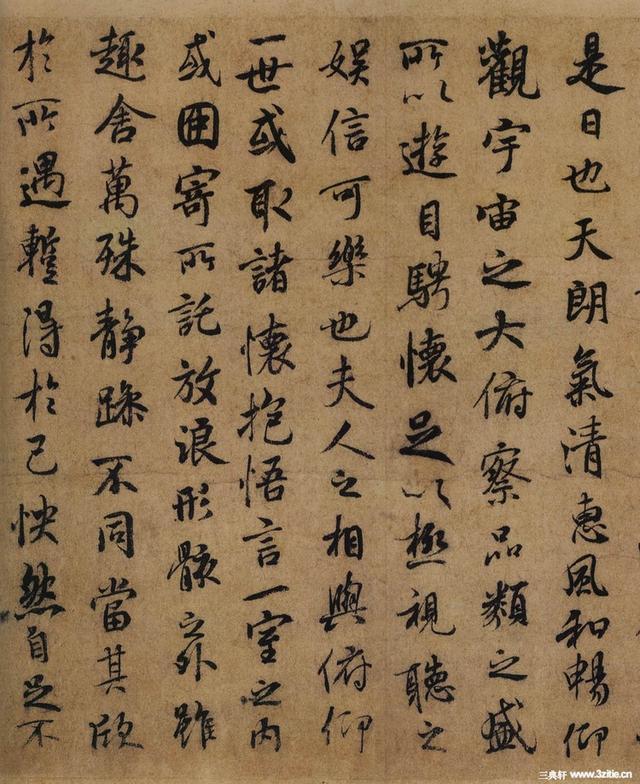 是日也天朗氣清惠風和暢仰
觀宇宙之大俯察品類之盛
所以遊目騁懷足以極視聽之
娛信可樂也夫人之相與俯仰
一世或取諸懷抱悟言一室之內
或因寄所託放浪形骸之外雖
趣舍萬殊靜躁不同當其欣
於所遇蹔得於己怏然自足不
三典轩 www.3zitie.cn